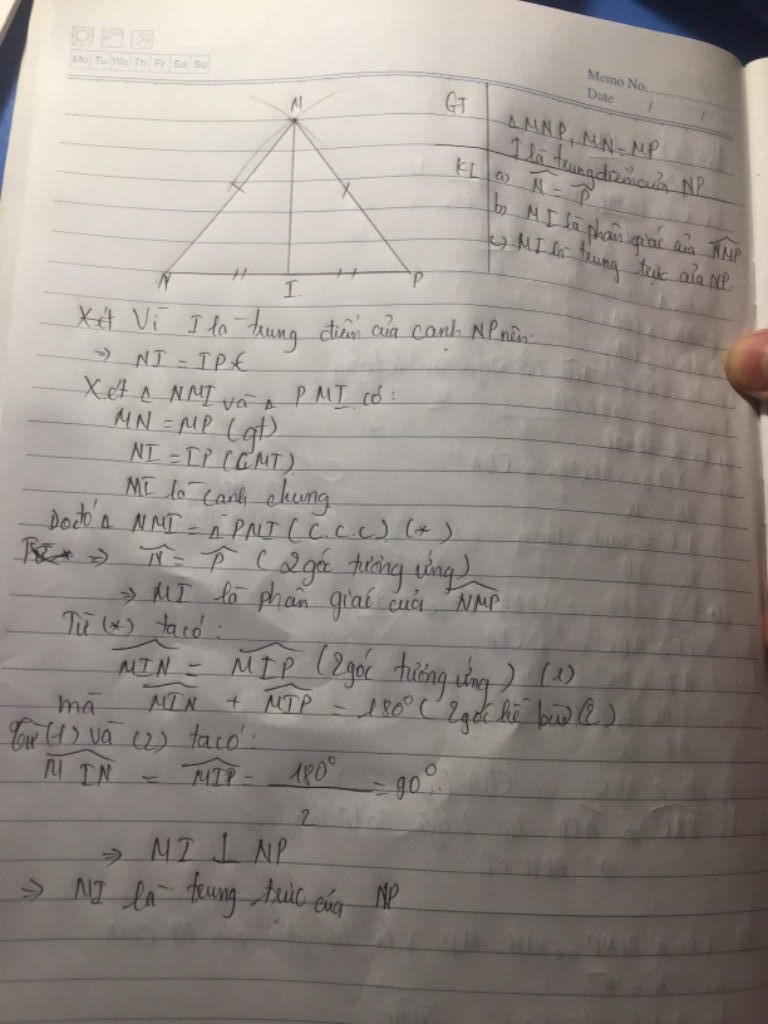 Mo Tu We Th Fr Sa Su
Memo No.
Date / /
M
N
I
P
GT
Δ MNP, MN = MP
I là trung điểm của NP
KL a) N̂ = P̂
b) MI là phân giác của NMP
c) MI là trung trực của NP.
Xét Vì I là trung điểm của cạnh NP nên.
=> NI = IP
Xét Δ NMI và Δ PMI có:
MN = MP (gt)
NI = IP (CMT)
MI là cạnh chung
Do đó Δ NMI = Δ PMI (c.c.c) (*)
=> N̂ = P̂ (2 góc tương ứng)
=> MI là phân giác của NMP
Từ (*) ta có:
MIN = MIP (2 góc tương ứng) (1)
mà MIN + MIP = 180° (2 góc kề bù) (2)
Từ (1) và (2) ta có:
MIN = MIP = 180°/2 = 90°.
=> MI ⊥ NP
=> MI là trung trực của NP